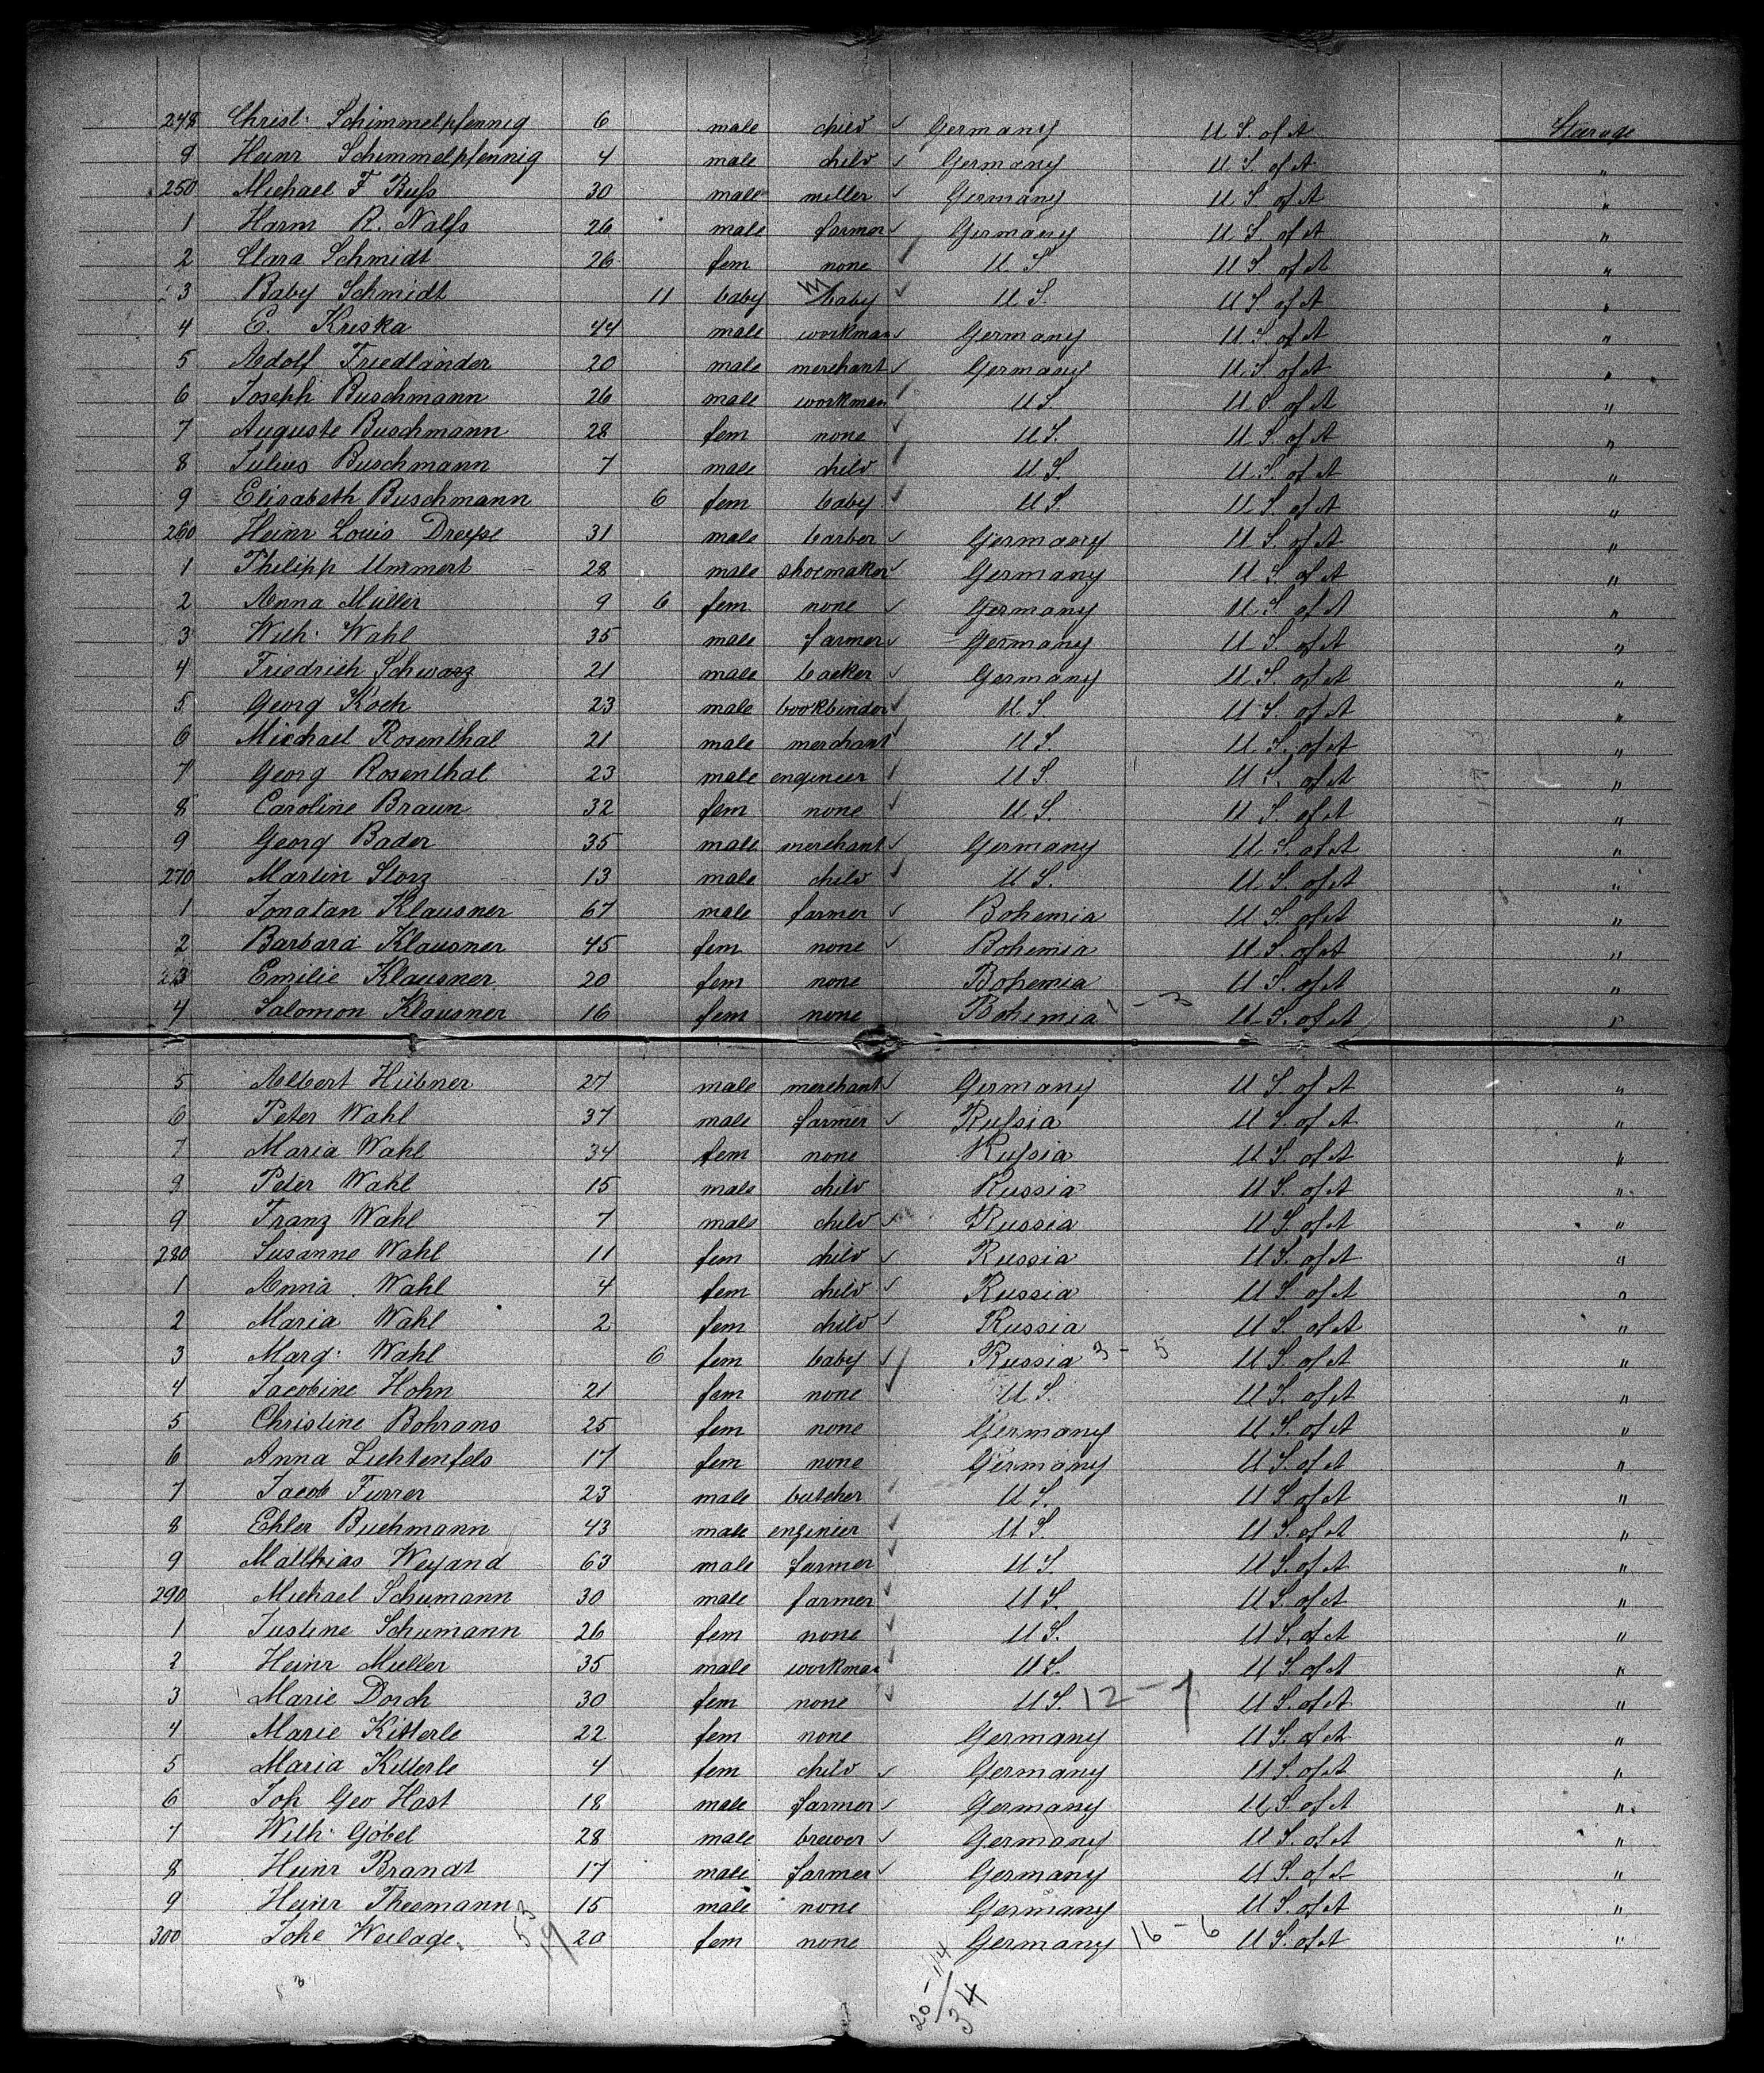 248 Christ. Schimmelpfennig 6 male child ✓ Germany U S. of A Steerage
9 Heinr Schimmelpfennig 4 male child ✓ Germany U S. of A "
250 Michael F Buſs 30 male miller ✓ Germany U S of A "
1 Harm R. Nalfs 26 male farmer ✓ Germany U S of A "
2 Clara Schmidt 26 fem none ✓ U. S. U S. of A "
3 Baby Schmidt 11 baby baby ✓ U S. U S of A "
4 E. Kriska 44 male workman ✓ Germany U S. of A "
5 Adolf Friedländer 20 male merchant ✓ Germany U. S. of A "
6 Joseph Buschmann 26 male workman ✓ U S. U. S. of A "
7 Auguste Buschmann 28 fem none ✓ U S. U. S. of A "
8 Julius Buschmann 7 male child ✓ U S. U. S. of A "
9 Elisabeth Buschmann 6 fem baby ✓ U S. U S. of A "
260 Heinr Louis Dreyse 31 male barber ✓ Germany U. S. of A "
1 Philipp Ummert 28 male shoemaker ✓ Germany U S of A "
2 Anna Müller 9 6 fem none ✓ Germany U S. of A "
3 Wilh. Wahl 35 male farmer ✓ Germany U. S. of A "
4 Friedrich Schwarz 21 male backer ✓ Germany U. S. of A "
5 Georg Koch 23 male bookbinder ✓ U. S. U S. of A "
6 Michael Rosenthal 21 male merchant ✓ U S. U S. of A "
7 Georg Rosenthal 23 male engineer ✓ U S. U S. of A "
8 Caroline Braun 32 fem none ✓ U. S. U S. of A "
9 Georg Bader 35 male merchant ✓ Germany U. S. of A "
270 Martin Storz 13 male child ✓ U S. U. S. of A "
1 Jonatan Klausner 67 male farmer ✓ Bohemia U S. of A "
2 Barbara Klausner 45 fem none ✓ Bohemia U S. of A "
273 Emilie Klausner 20 fem none Bohemia U S. of A "
4 Salomon Klausner 16 fem none Bohemia 1 - 3 U S. of A "
5 Albert Hübner 27 male merchant ✓ Germany U S. of A "
6 Peter Wahl 37 male farmer ✓ Ruſsia U S. of A "
7 Maria Wahl 34 fem none Ruſsia U S. of A "
9 Peter Wahl 15 male child Russia U S. of A "
9 Franz Wahl 7 male child ✓ Russia U S. of A "
280 Susanne Wahl 11 fem child ✓ Russia U S. of A "
1 Anna Wahl 4 fem child ✓ Russia U S of A "
2 Maria Wahl 2 fem child ✓ Russia U S. of A "
3 Marg. Wahl 6 fem baby ✓ Russia 3 - 5 U S. of A "
4 Jacobine Hohn 21 fem none ✓ U S. U S. of A "
5 Christine Bohrans 25 fem none Germany U S. of A "
6 Anna Lichtenfels 17 fem none Germany U S. of A "
7 Jacob Furrer 23 male butcher ✓ U S. U S of A "
8 Ehler Buchmann 43 male enginier ✓ U S. U S. of A "
9 Matthias Weyand 63 male farmer ✓ U S. U S. of A "
290 Michael Schumann 30 male farmer ✓ U S. U S. of A "
1 Justine Schumann 26 fem none ✓ U S. U S. of A "
2 Heinr Muller 35 male workman ✓ U S. U S. of A "
3 Marie Dorch 30 fem none ✓ U S. 12 - 1 U S. of A "
4 Marie Kitterle 22 fem none Germany U S. of A "
5 Maria Kitterle 4 fem child ✓ Germany U S. of A "
6 Joh Geo Hast 18 male farmer ✓ Germany U S. of A "
7 Wilh. Göbel 28 male brewer ✓ Germany U S. of A "
8 Heinr Brandt 17 male farmer ✓ Germany U S. of A "
9 Heinr Thesmann 15 male none Germany U S. of A "
300 Johe Weilage 53 19 20 fem none Germany 16 - 6 U S. of A "
20 - 14
34